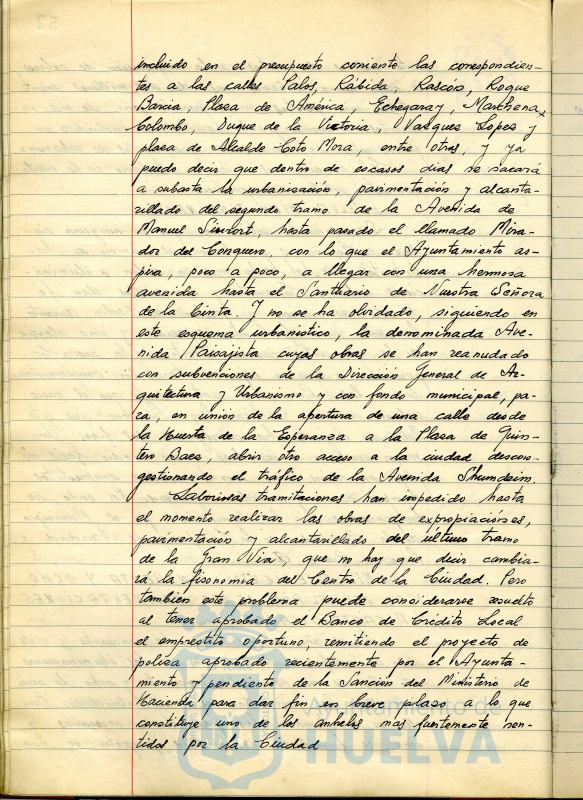 incluido en el presupuesto corriente las correspondien-
tes a las calles Palos, Rábida, Rascón, Roque
Barcia, Plaza de América, Echegaray, Marchena
Colombo, Duque de la Victoria, Vazquez Lopez y
plaza de Alcalde Coto Mora, entre otras, y ya
puedo decir que dentro de escasos dias se sacará
a subasta la urbanización, pavimentación y alcanta-
rillado del segundo tramo de la Avenida de
Manuel Siurot, hasta pasado el llamado Mira-
dor del Conquero, con lo que el Ayuntamiento as-
pira, poco a poco, a llegar con una hermosa
avenida hasta el Santuario de Nuestra Señora
de la Cinta. Y no se ha olvidado, siguiendo en
este esquema urbanistico, la denominada Ave-
nida Paisajista cuyas obras se han reanudado
con subvenciones de la Dirección General de Ar-
quitectura y Urbanismo y con fondo municipal, pa-
ra, en unión de la apertura de una calle desde
la Huerta de la Esperanza a la Plaza de Quin-
tero Baez, abrir otro acceso a la ciudad descon-
gestionando el tráfico de la Avenida Shundeim.
Laboriosas tramitaciones han impedido hasta
el momento realizar las obras de expropiaciónes,
pavimentación y alcantarillado del último tramo
de la Gran Via, que no hay que decir cambia-
rá la fisonomia del Centro de la Ciudad. Pero
tambien este problema puede considerarse resuelto
al tener aprobado el Banco de Crédito Local
el emprestito oportuno, remitiendo el proyecto de
poliza aprobado recientemente por el Ayunta-
miento y pendiente de la Sanción del Ministerio de
Hacienda para dar fin en breve plazo a lo que
constituye uno de los anhelos mas fuertemente sen-
tidos por la Ciudad
Ayuntamiento de
HUELVA